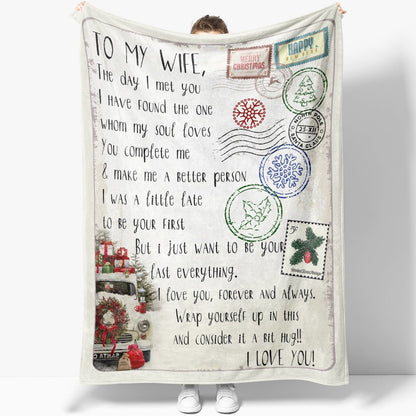 TO MY WIFE,
MERRY CHRISTMAS
HAPPY
The day I met you
I have found the one
whom my soul loves
NORTH POLE
SANTA CLAUS
You complete me
& make me a better person
I was a little late
to be your first
But I just want to be your
last everything.
I love you, forever and always.
Wrap yourself up in this
and consider it a bit hug!!
I LOVE YOU!
SANTA C